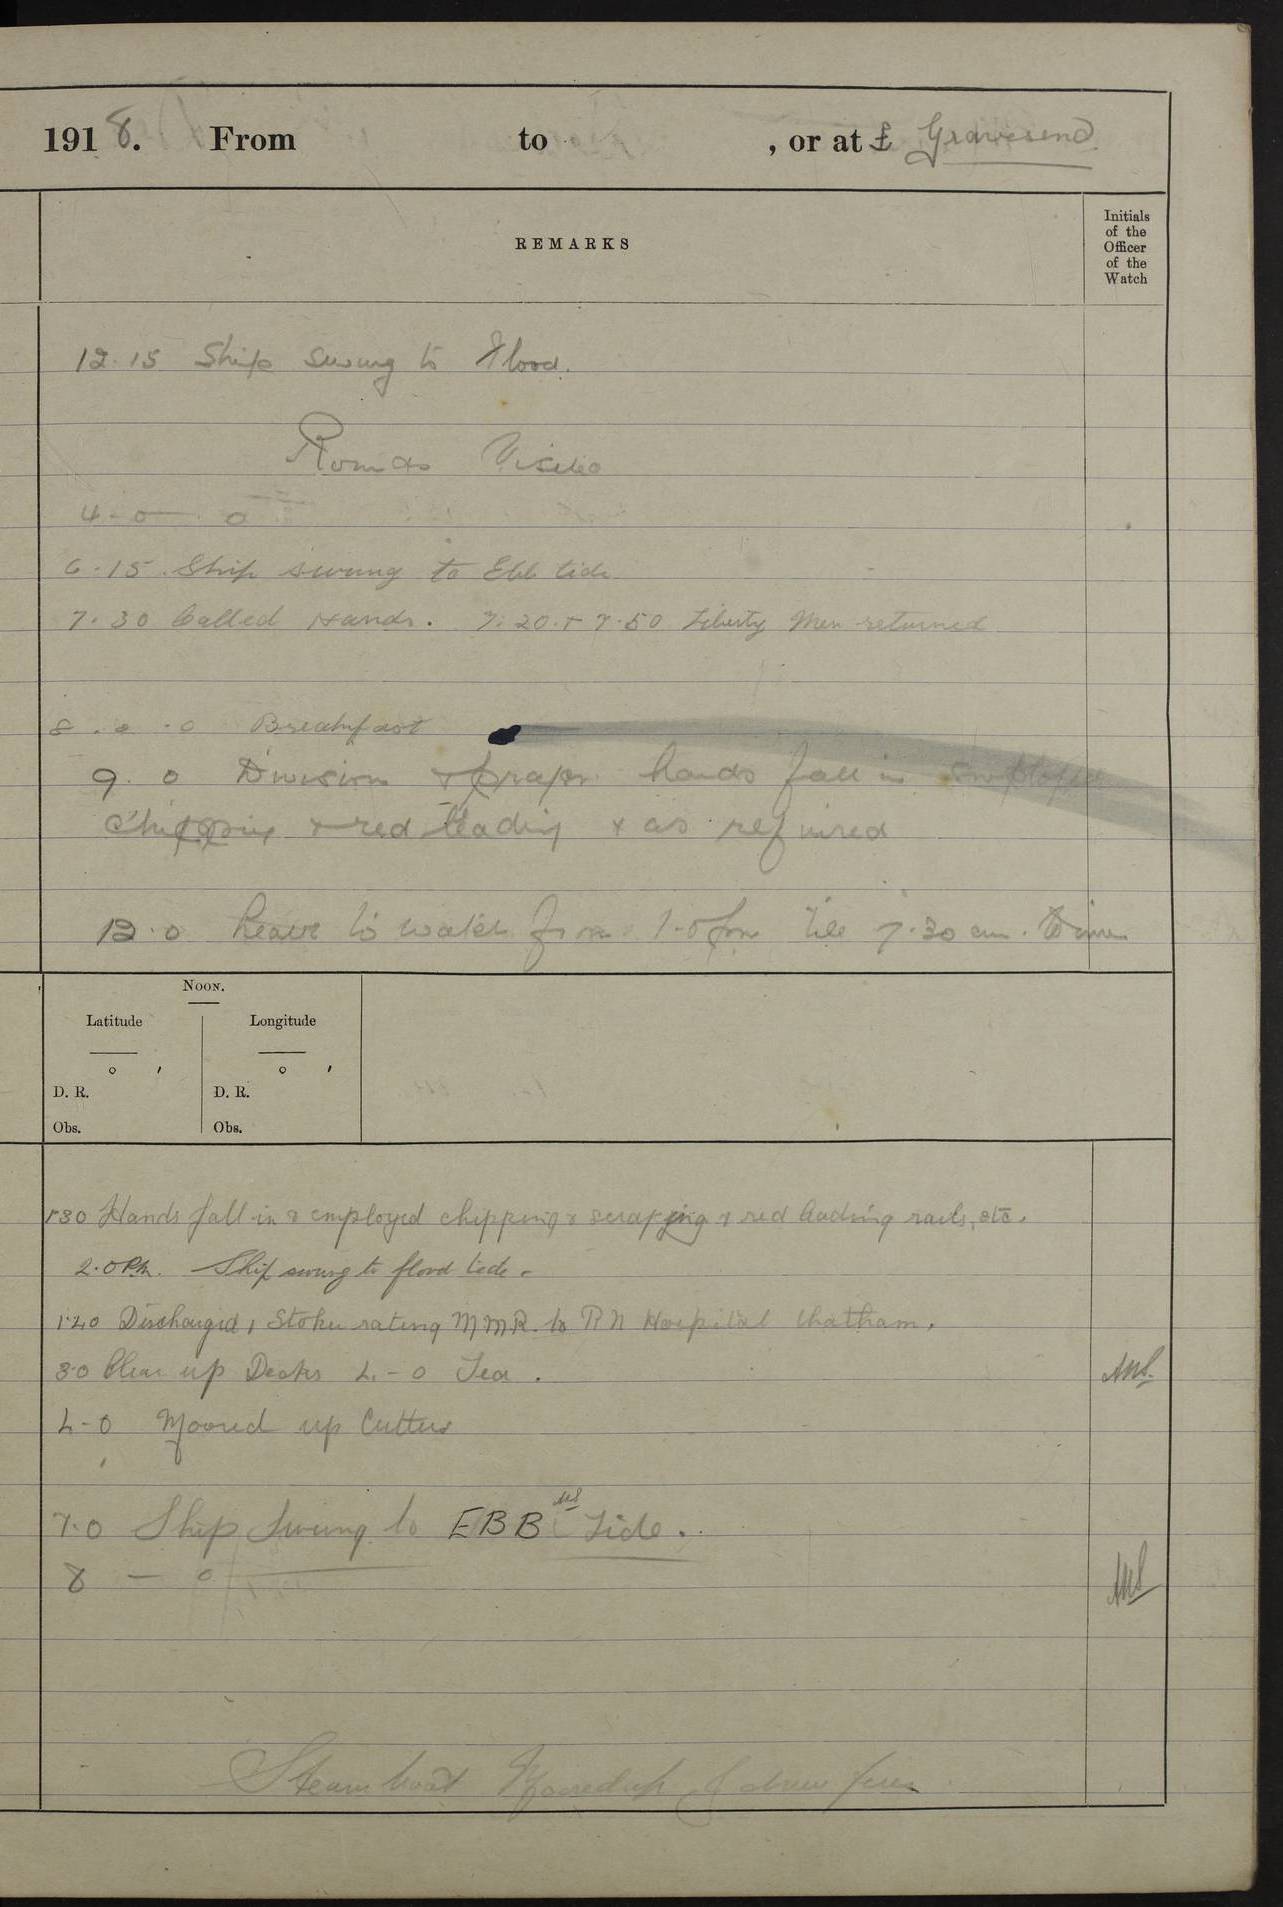 1918. From to , or at £ Gravesend.
REMARKS
Initials
of the
Officer
of the
Watch
12.15 Ship swung to Flood.
Rounds Visited
4-0 0
6.15 Ship swung to Ebb tide
7.30 Called Hands. 7.20 + 7.50 Liberty Men returned
8.0 Breakfast
9.0 Division + prayers hands fall in employed
Chipping + red leading + as required
12.0 leave to watch from 1.0 pm till 7.30 am. Dinner
NOON.
Latitude Longitude
° ′ ° ′
D. R. D. R.
Obs. Obs.
1.30 Hands fall in & employed chipping & scraping & red leading rails, etc.
2.0 P.M. Ship swung to flood tide.
1.40 Discharged 1 Stoker rating M M R. to R N Hospital Chatham.
3.0 Clear up Decks 4-0 Tea.
4-0 Moored up Cutters
7.0 Ship Swung to EBB Tide.
8 - 0
Steam boat Moored up & drew fires